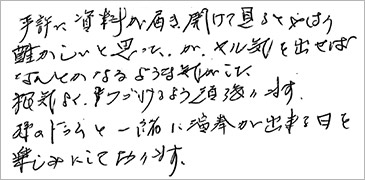 手許に資料が届き開けて見るとやはり
難かしいと思って、が、ヤル気を出せば
なんとかなるような気がして、
根気よく、片づけるよう頑張ります。
孫のドラムと一緒に演奏が出来る日を
楽しみにしております。